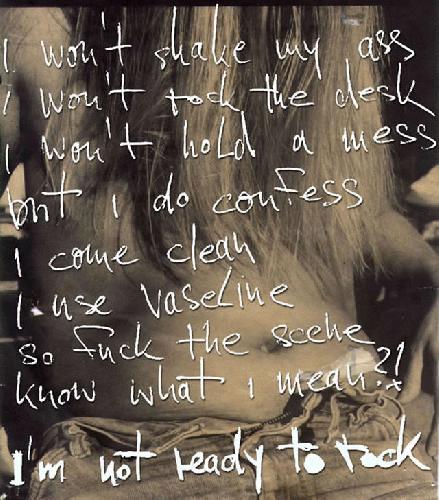 I won't shake my ass
I won't rock the desk
I won't hold a mess
but i do confess
I come clean
I use vaseline
so fuck the scene
know what i mean?!
I'm not ready to rock